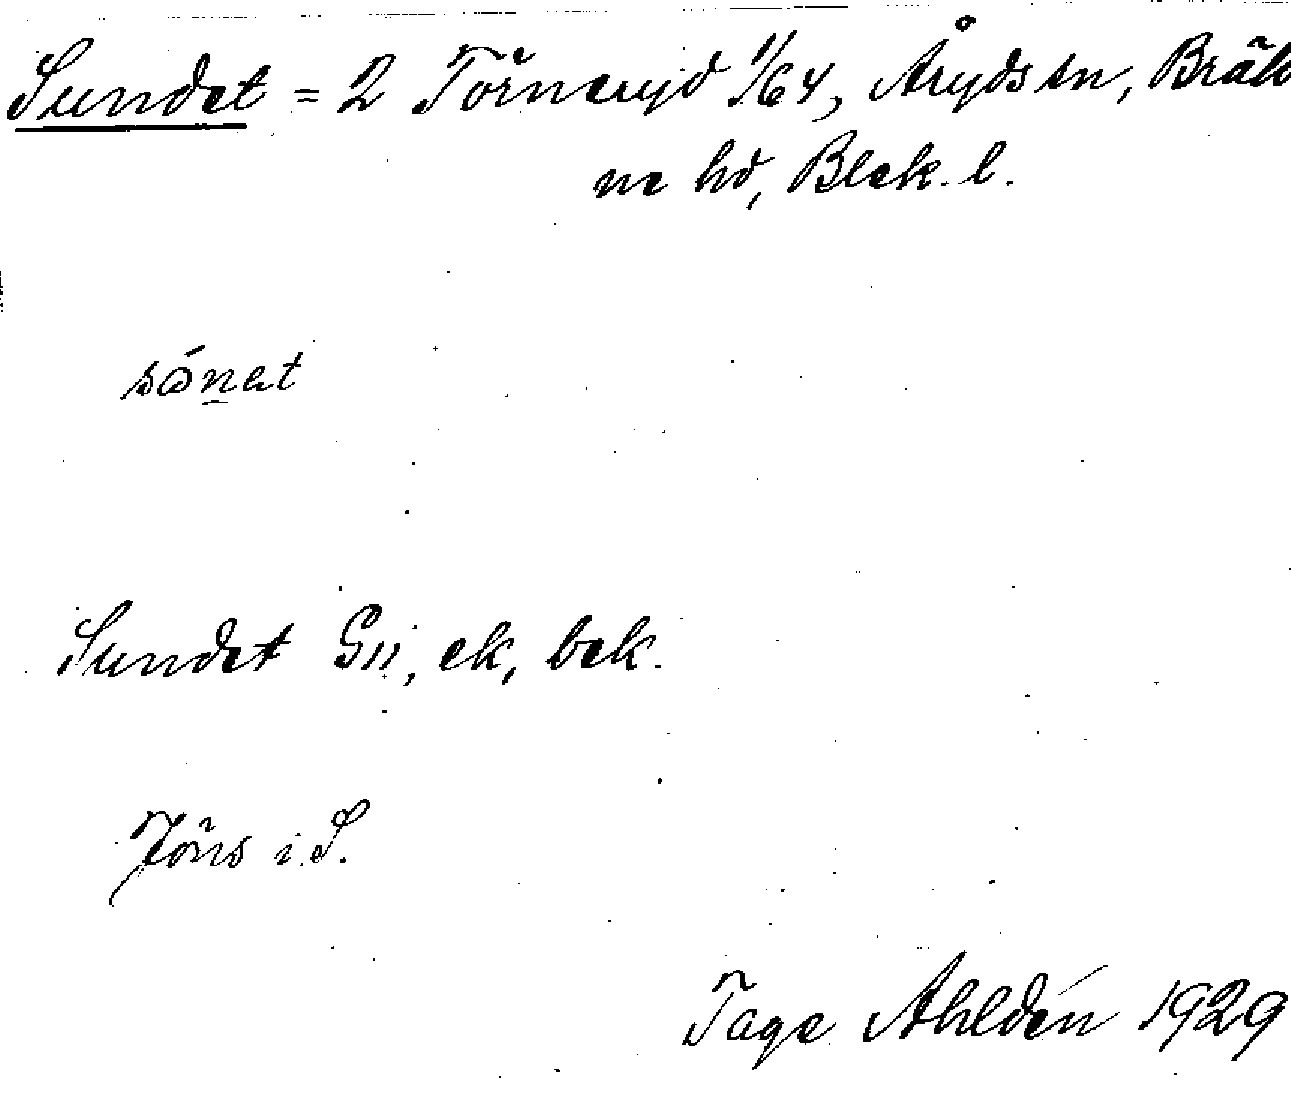 Sundet = 2 Törneryd 1/64, Åryds sn, Bräk
ne hd, Blek. l.
sónet
Sundet GII, ek, bek.
Jöns i S.
Tage Ahldén 1929